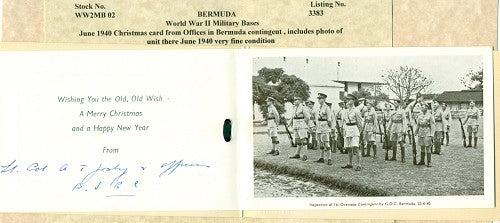 Stock No.
WW2MB 02
BERMUDA
World War II Military Bases
Listing No.
3383
June 1940 Christmas card from Offices in Bermuda contingent , includes photo of
unit there June 1940 very fine condition
Wishing You the Old, Old Wish -
A Merry Christmas
and a Happy New Year
From
Lt. Col A
officers
Inspection of 1st Overseas Contingent by G.O.C. Bermuda, 22-6-40